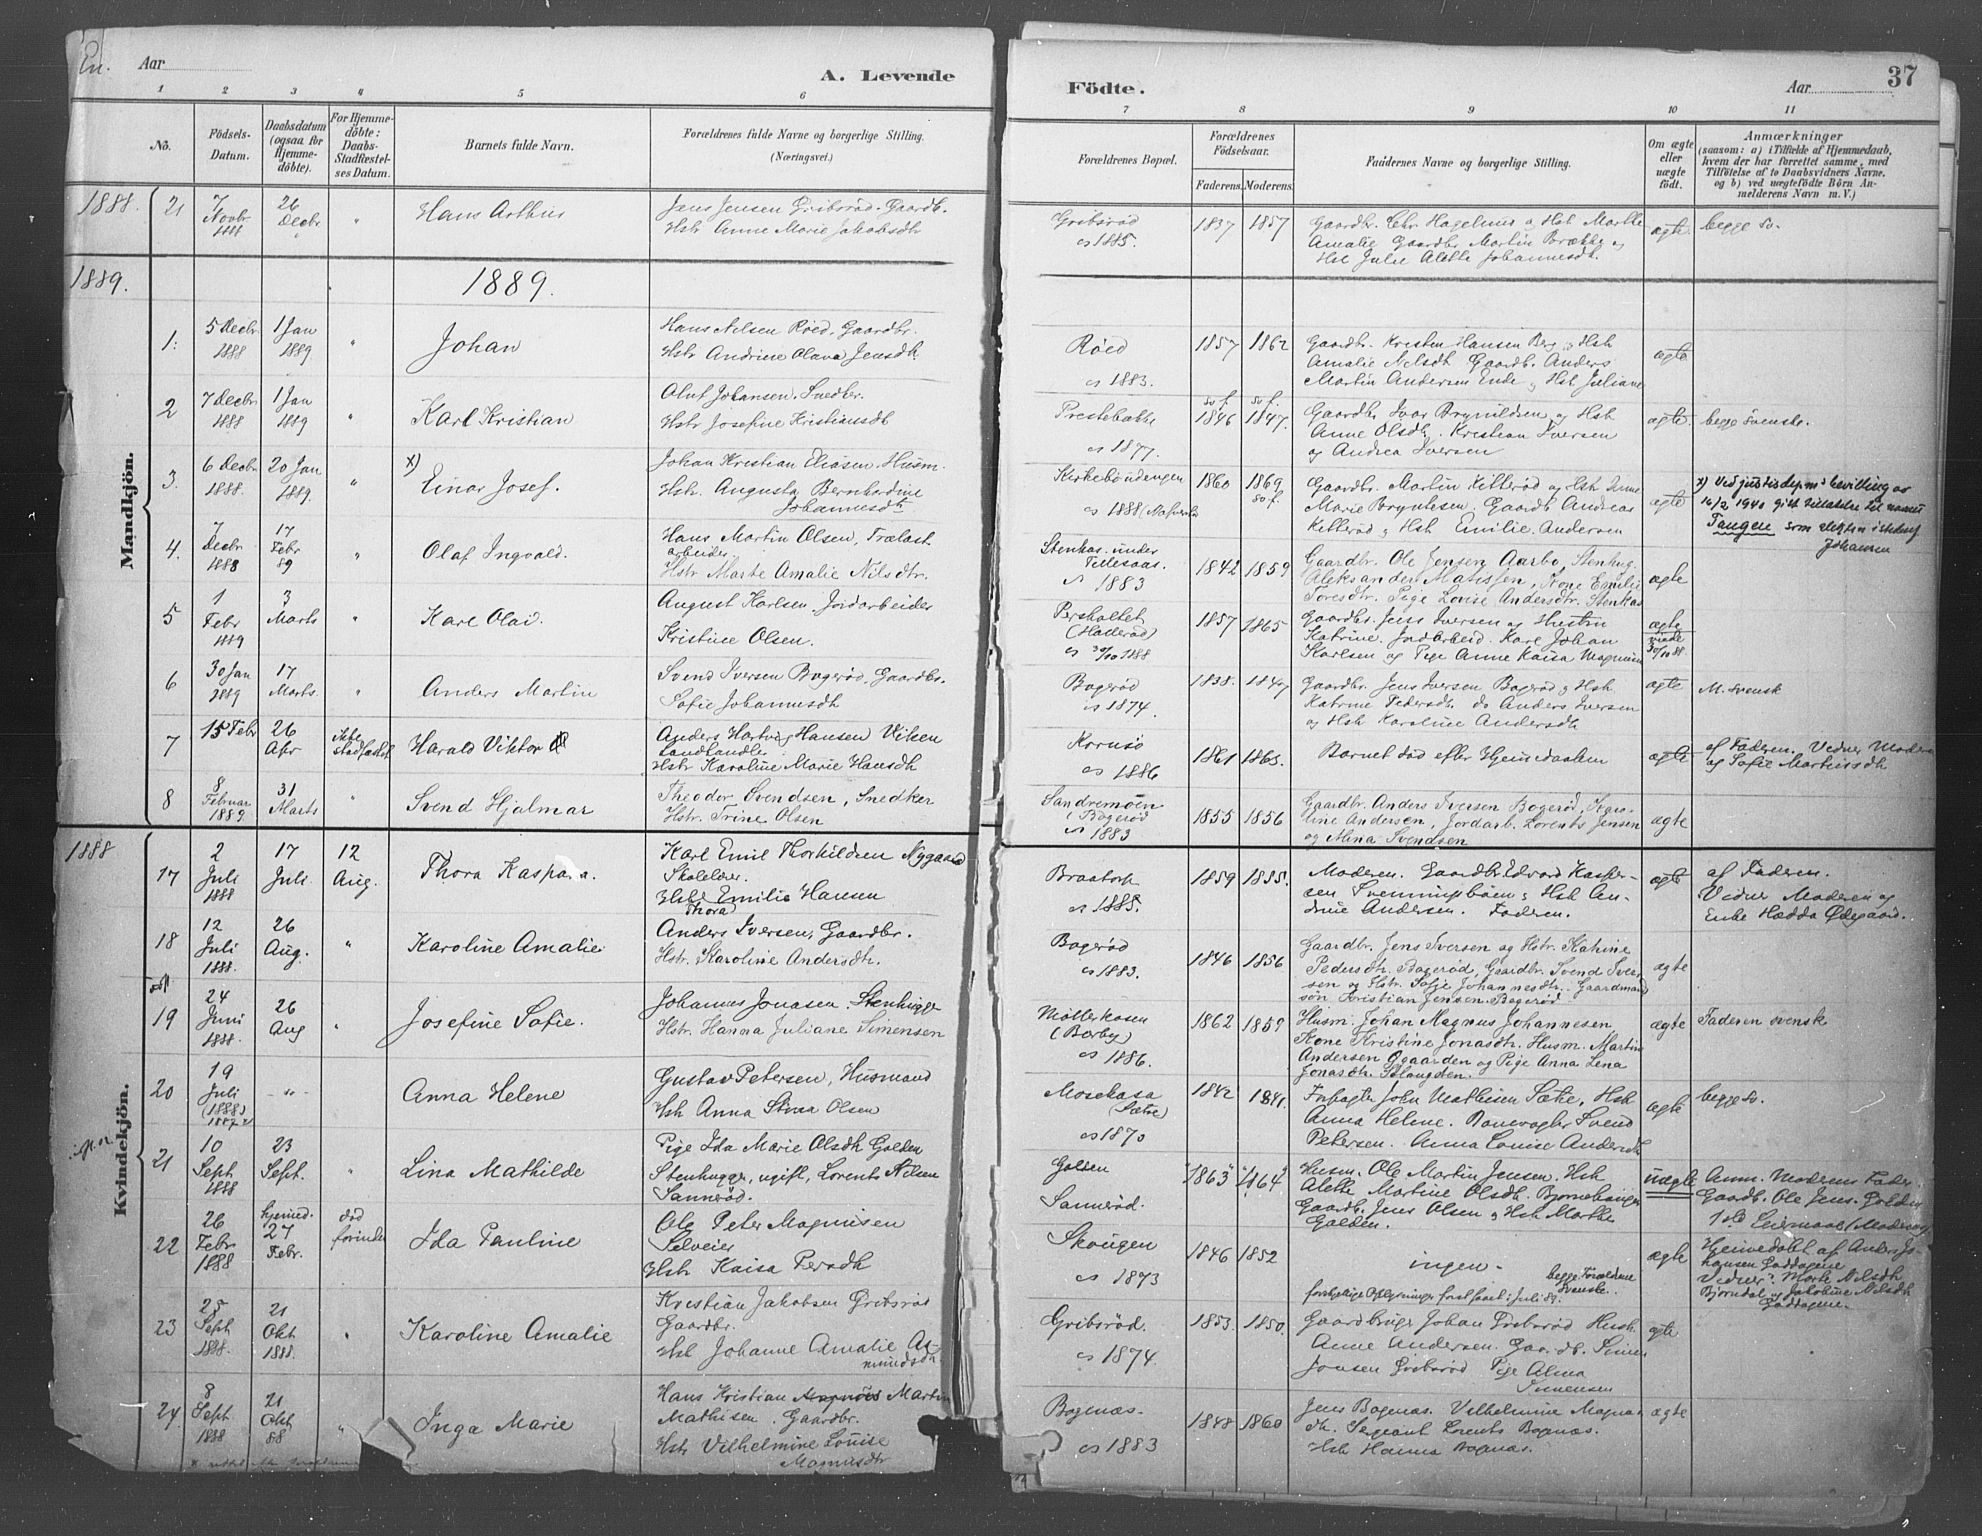 En. Aar
A. Levende
Födte.
Aar
37
1 2 3 4 5 6 7 8 9 10 11
No.
Födsels-
Datum.
Daabsdatum
(ogsaa for
Hjemme-
döbte).
For Hjemme-
döbte:
Daabs-
Stadfæstel-
ses Datum.
Barnets fulde Navn.
Forældrenes fulde Navne og borgerlige Stilling.
(Næringsvei.)
Forældrenes Bopæl.
Forældrenes
Födselsaar.
Faderens. Moderens.
Faddernes Navne og borgerlige Stilling.
Om ægte
eller
uægte
födt.
Anmærkninger
(saasom: a) i Tilfælde af Hjemmedaab,
hvem der har forrettet samme, med
Tilföielse af to Daabsvidners Navne.
og b) ved uægtefödte Börn An-
melderens Navn m. V.)
Mandkjön.
1888. 21
7
Novbr
1888
26
Decbr
"
Hans Arthur
Jens Jensen Gribsrød. Gaardb.
Hstr Anne Marie Jakobsdtr
Gribsrød
cs 1885.
1837 1857
Gaardbr. Chr Hagelund og Hst Marthe
Amalie Gaardbr Martin Brække og
Hst Julie Alette Johannesdt.
ægte
begge sv.
1889.
1889.
1.
5 Decbr
1888
1 Jan
1889
"
Johan
Hans Nilsen Røed, Gaardbr.
Hstr Andrine Olava Jensdt
Røed
cs 1883.
1857 1862
Gaardb. Kristen Hansen Berg og Hst
Amalie Nilsdt Gaardb. Anders
Martin Andersen Ende og Hst Juliane
ægte
2
7 Decbr
1888
1 Jan
1889
"
Karl Kristian
Oluf Johansen. Snedker.
Hstr Josefine Kristiansdt
Prestebakke
cs 1877.
sv f. sv f.
1846 1847.
Gaardbr Ivar Brynildsen og Hst
Anne Olsdt. Kristian Iversen
og Andrea Iversen
ægte.
begge svenske.
3.
6 Decbr
1888.
20 Jan
1889.
"
x)
Einar Josef.
Johan Kristian Eliasen. Husm.
Hstr. Augusta Bernhardine
Johannesdt
Kirkebøudengen
cs 1888
1860 1869
sv f.
Gaardbr. Martin Killerød og Hst Anne
Marie Bryntesen, Gaardb Andreas
Killerød og Hst Emilie Andersen
ægte
x) Ved justisdep.ms bevilling av
16/2 1940 gitt tillatelse til navnet
Tangen som slektsn istedenf
Johansen
4.
7
Decbr
1888
17
Febr
89
"
Olaf Ingvald.
Hans Martin Olsen, Trælast
arbeider
Hstr Marte Amalie Nilsdtr.
Stenkas. under
Tillesaas.
cs 1883
1842 1859
Gaardbr. Ole Jensen Aarbo, Stenhug.
Aleksander Matissen, Kone Emilie
Toresdtr. Pige Louise Andersdtr. Stenkas
ægte
5
1
Febr
1889
3
Marts
"
Karl Olai.
August Karlsen, Jordarbeider
Kristine Olsen.
Persholtet
(Haderød)
cs 30/10 1888
1857 1865
Gaardbr. Jens Iversen og Hustru
Katrine. Jordarbeid. Karl Johan
Karlsen og Pige Anne Kaisa Magnusen
ægte
viede
30/10 88.
6
30 Jan
1889
17
Marts.
"
Anders Martin
Svend Iversen Bogerød, Gaardbr.
Sofie Johannesdt
Bogerød
cs 1874.
1838. 1847
Gaardbr. Jens Iversen Bogerød og Hst
Katrine Pedersdt. do Anders Iversen
og Hst Karoline Andersdt
ægte
M. svensk
7
15 Febr
26
Apr
ikke
stadfæstet
Harald Viktor
Anders Hartvig Hansen Viken
Landhandler
Hstr Karoline Marie Hansdt
Kornsø
cs 1886
1861 1863.
Barnet død efter Hjemdaaben
ægte
af Faderen. Vidner Moderen
og Sofie Martinsdt
8
8
Februar
1889
31
Marts
"
Svend Hjalmar
Theodor Svendsen, Snedker
Hstr. Trine Olsen
Sandremoen
i Bogerød
cs 1883
1855 1856
Gaardbr. Anders Iversen Bogerød, Karo-
line Andersen, Jordarb. Lorents Jensen
og Mina Svendsen
ægte
Kvindekjön.
1888
17
2
Juli
1888
17
Juli
12
Aug.
Thora Kaspara.
Karl Emil Thorkildsen Nygaard
Skolelærer.
Hstr Emilie Hansen
Thora
Braatorp
cs 1885.
1859 1855.
Moderen. Gaardbr Edvard Kasper-
sen Svenningbøen og Hst An-
drine Andersen. Faderen.
ægte
af Faderen.
Vidner Moderen og
Enke Hedda Ødegaard.
18
12
Juli
1888.
26
Aug.
"
Karoline Amalie
Anders Iversen, Gaardbr.
Hstr. Karoline Andersdtr.
Bogerød
cs 1883.
1846 1856
Gaardbr. Jens Iversen og Hstr. Katrine
Pedersdtr. Bogerød, Gaardbr. Svend Iver-
sen og Hstr. Sofie Johannesdtr. Gaardmand
søn Kristian Jensen. Bogerød
ægte
19
24
Juni
1888.
26
Aug
"
Josefine Sofie.
Johannes Jonasen. Stenhugger
Hstr. Hanna Juliane Simensen
Mølterkasen
(Berby)
cs 1886.
1862 1859
Husm. Johan Magnus Johannesen
Kone Kristine Jonasdtr. Husm. Martin
Andersen Øgaarden og Pige Anna Lena
Jonasdtr. Blangsten.
ægte
Faderen svensk
20
19
Juli
(1888)
"
Anna Helene
Gustav Petersen, Husmand
Hst Anna Stina Olsen
Mosekasa
(Sætre)
cs 1870
1842 1841.
Forpagter John Mathisen Sætre, Hst
Anna Helene. Banevogter Svend
Petersen. Anna Louise Andersdt
ægte
begge sv.
21
10
Sept
1888
23
Sept.
"
Lina Mathilde
Pige Ida Marie Olsdt Golden
Stenhugger, ugift, Lorents Nilsen
Sannerød.
Golden
Sannerød.
1863 1864
Husm. Ole Martin Jensen. Hst
Alette Martine Olsdt. Bjørnehaugen
Gaardbr. Jens Olsen og Hst Marthe
Golden.
uægte
Anm. Moderens Fader
Gaardb. Ole Jens. Golden
1ste Leiermaal (Moderen)
22
26
Febr
1888
hjemmed.
27
Febr.
død
forinden
Ida Pauline
Ole Peter Magnusen
Selveier
Hstr Kaisa Persdt
Skougen
cs 1873
1846 1852
ingen.
begge Forældrene
Svenske.
ægte
Hjemmedøbt af Anders Jo-
hansen
Vidner: Marte Nilsdt
Bjørndal og Jakobine Nilsdt
23
25
Sept
1888
21
Okt
1888.
"
Karoline Amalie
Kristian Jakobsen Gribsrød
Gaardbr.
Hst Johanne Amalie As-
mundsdtr
Gribsrød.
cs 1874.
1853. 1850.
Gaardbruger Johan Gribsrød Husch
Anne Andersen. Simen
Jonsen Gribsrød Pige Alma
Simensen
ægte
24.
8
Sept
1888
21
Okt
88
"
Inga Marie
Hans Kristian Magnus Martin
Mathisen. Gaardbr.
Hstr Vilhelmine Louise
Magnusdtr
Bogenæs.
cs 1883
1848 1860
Jens Bogenæs. Vilhelmine Magnus-
dt. Sergeant Lorents Bogenæs.
Hst Hanna Bogenæs.
ægte